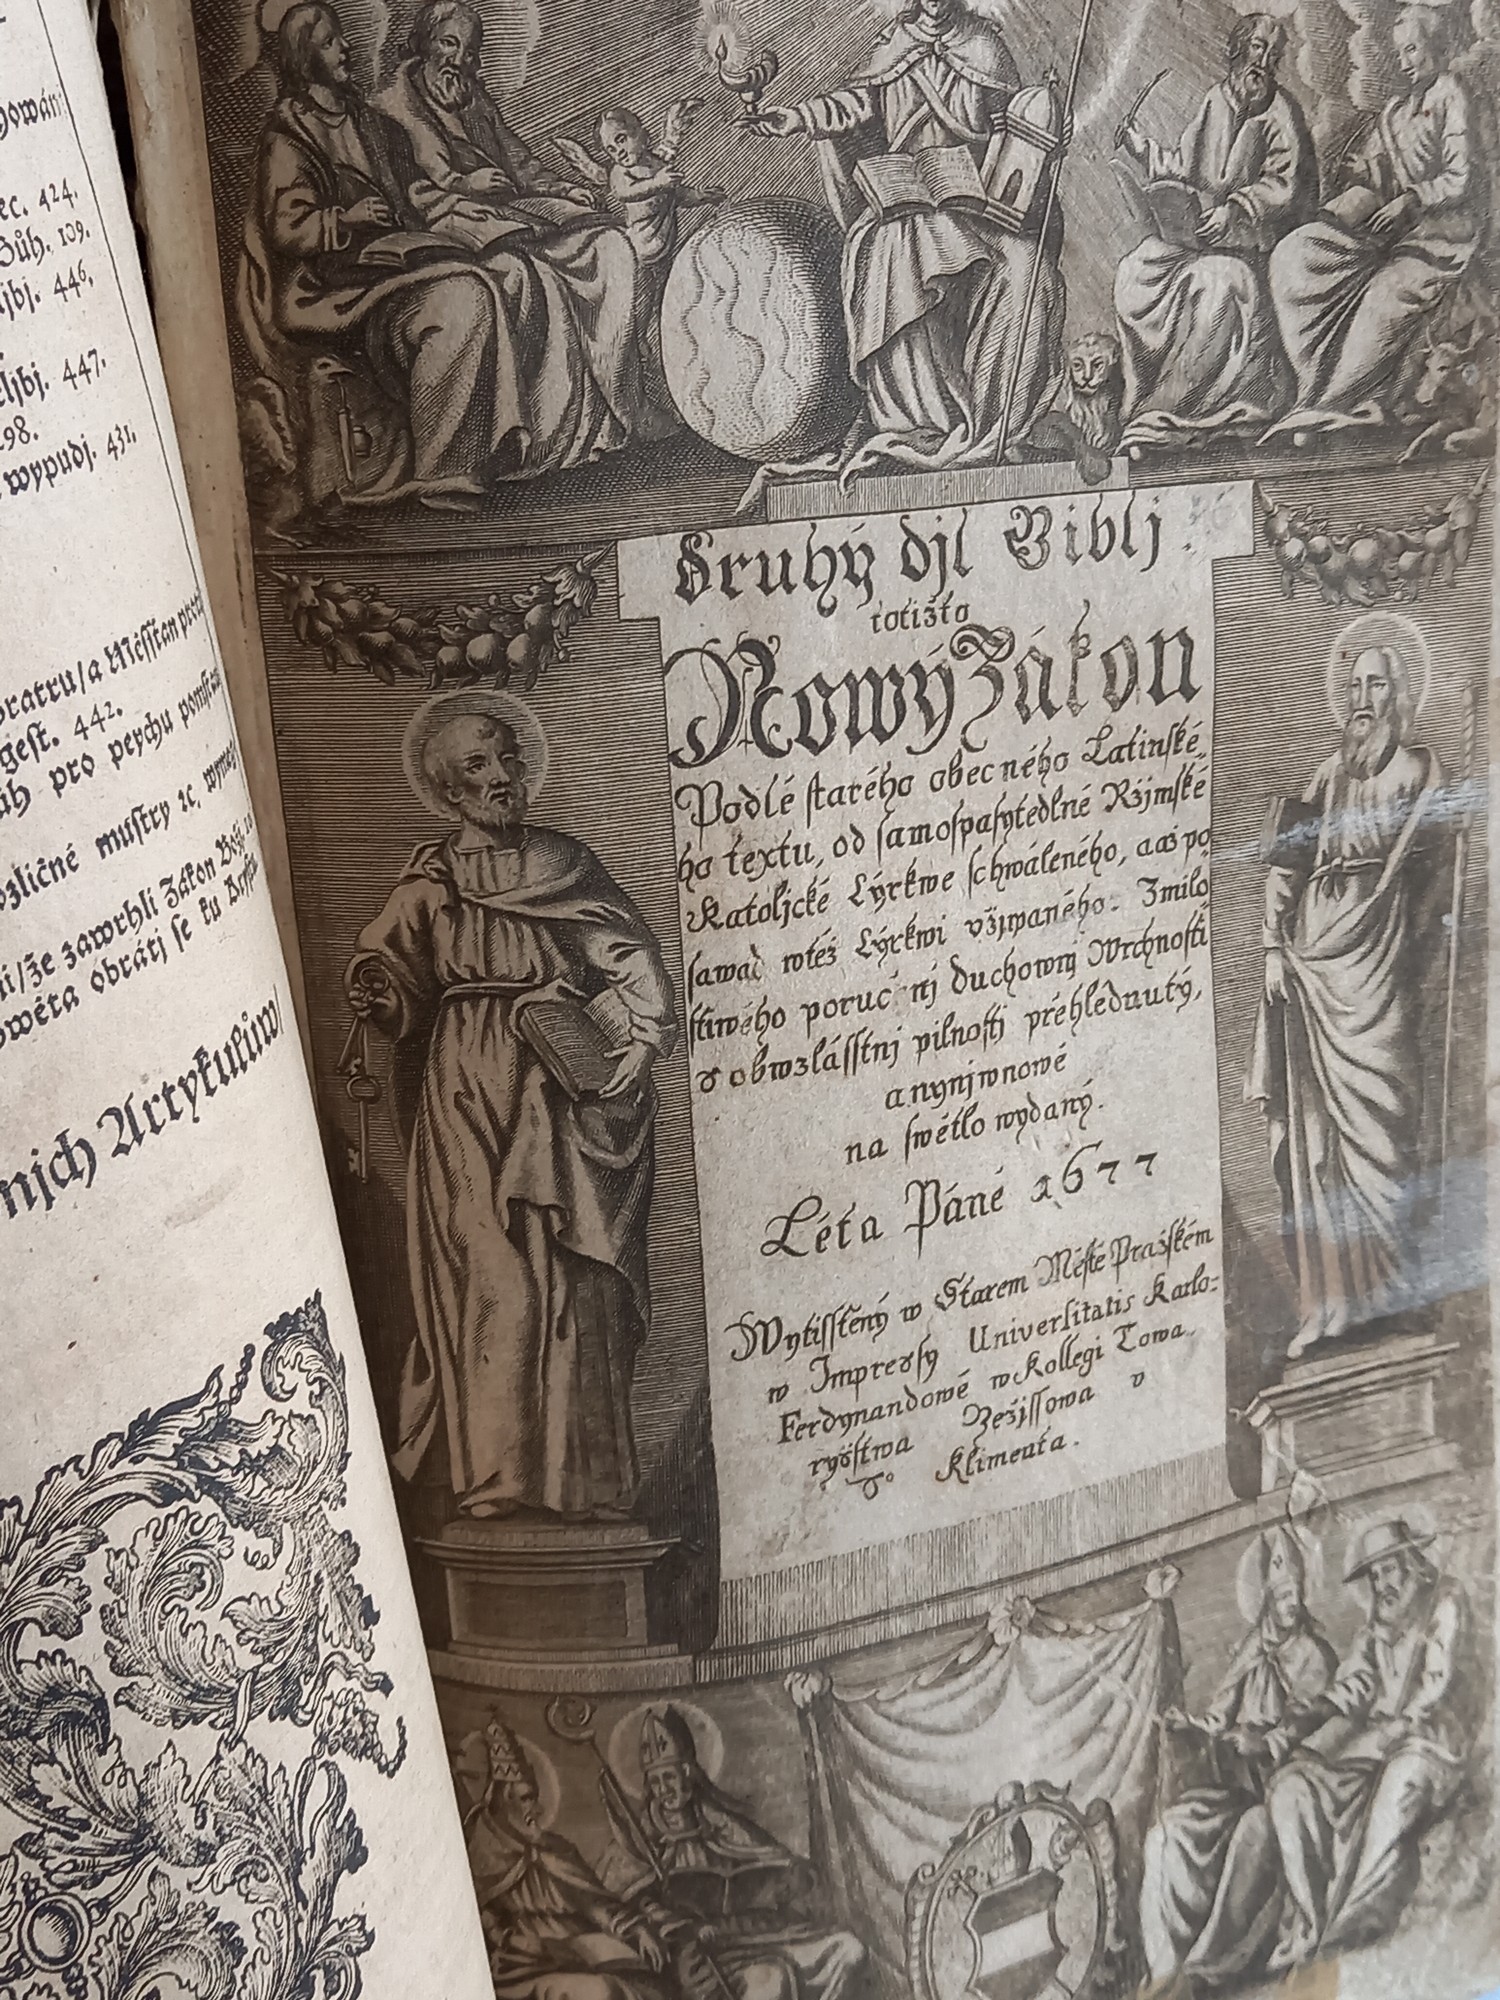 howánj
ec. 424.
Bůh. 109.
ljbj. 446.
eljbj. 447.
198.
wypudj. 431.
bratru/a Měsstan
gest. 442.
pro peychu
ozličné mustry ꝛc.
ni/že zawrhli Zákon Božj
swěta obrátj se ku
njch Artykulůw/
Druhý djl Biblj
totižto
Nowý Zákon
Podlé starého obecného Latinské„
ho textu, od samospasytedlné Ržjmské
Katoljcké Cýrkwe schwáleného, a až po„
sawad w též Cýrkwi vžjwaného: Z milo„
stiwého poručenj duchownj Wrchnosti
s obwzlásstnj pilnostj přehlednutý,
a nynj w nowě
na swětlo wydaný.
Léta Páně 1677
Wytisstěný w Starem Městě Pražském
w Impressy Universitatis Karlo-
Ferdynandowě w Kollegi Towa„
rysstwa Gežjssowa v
S° Klimenta.